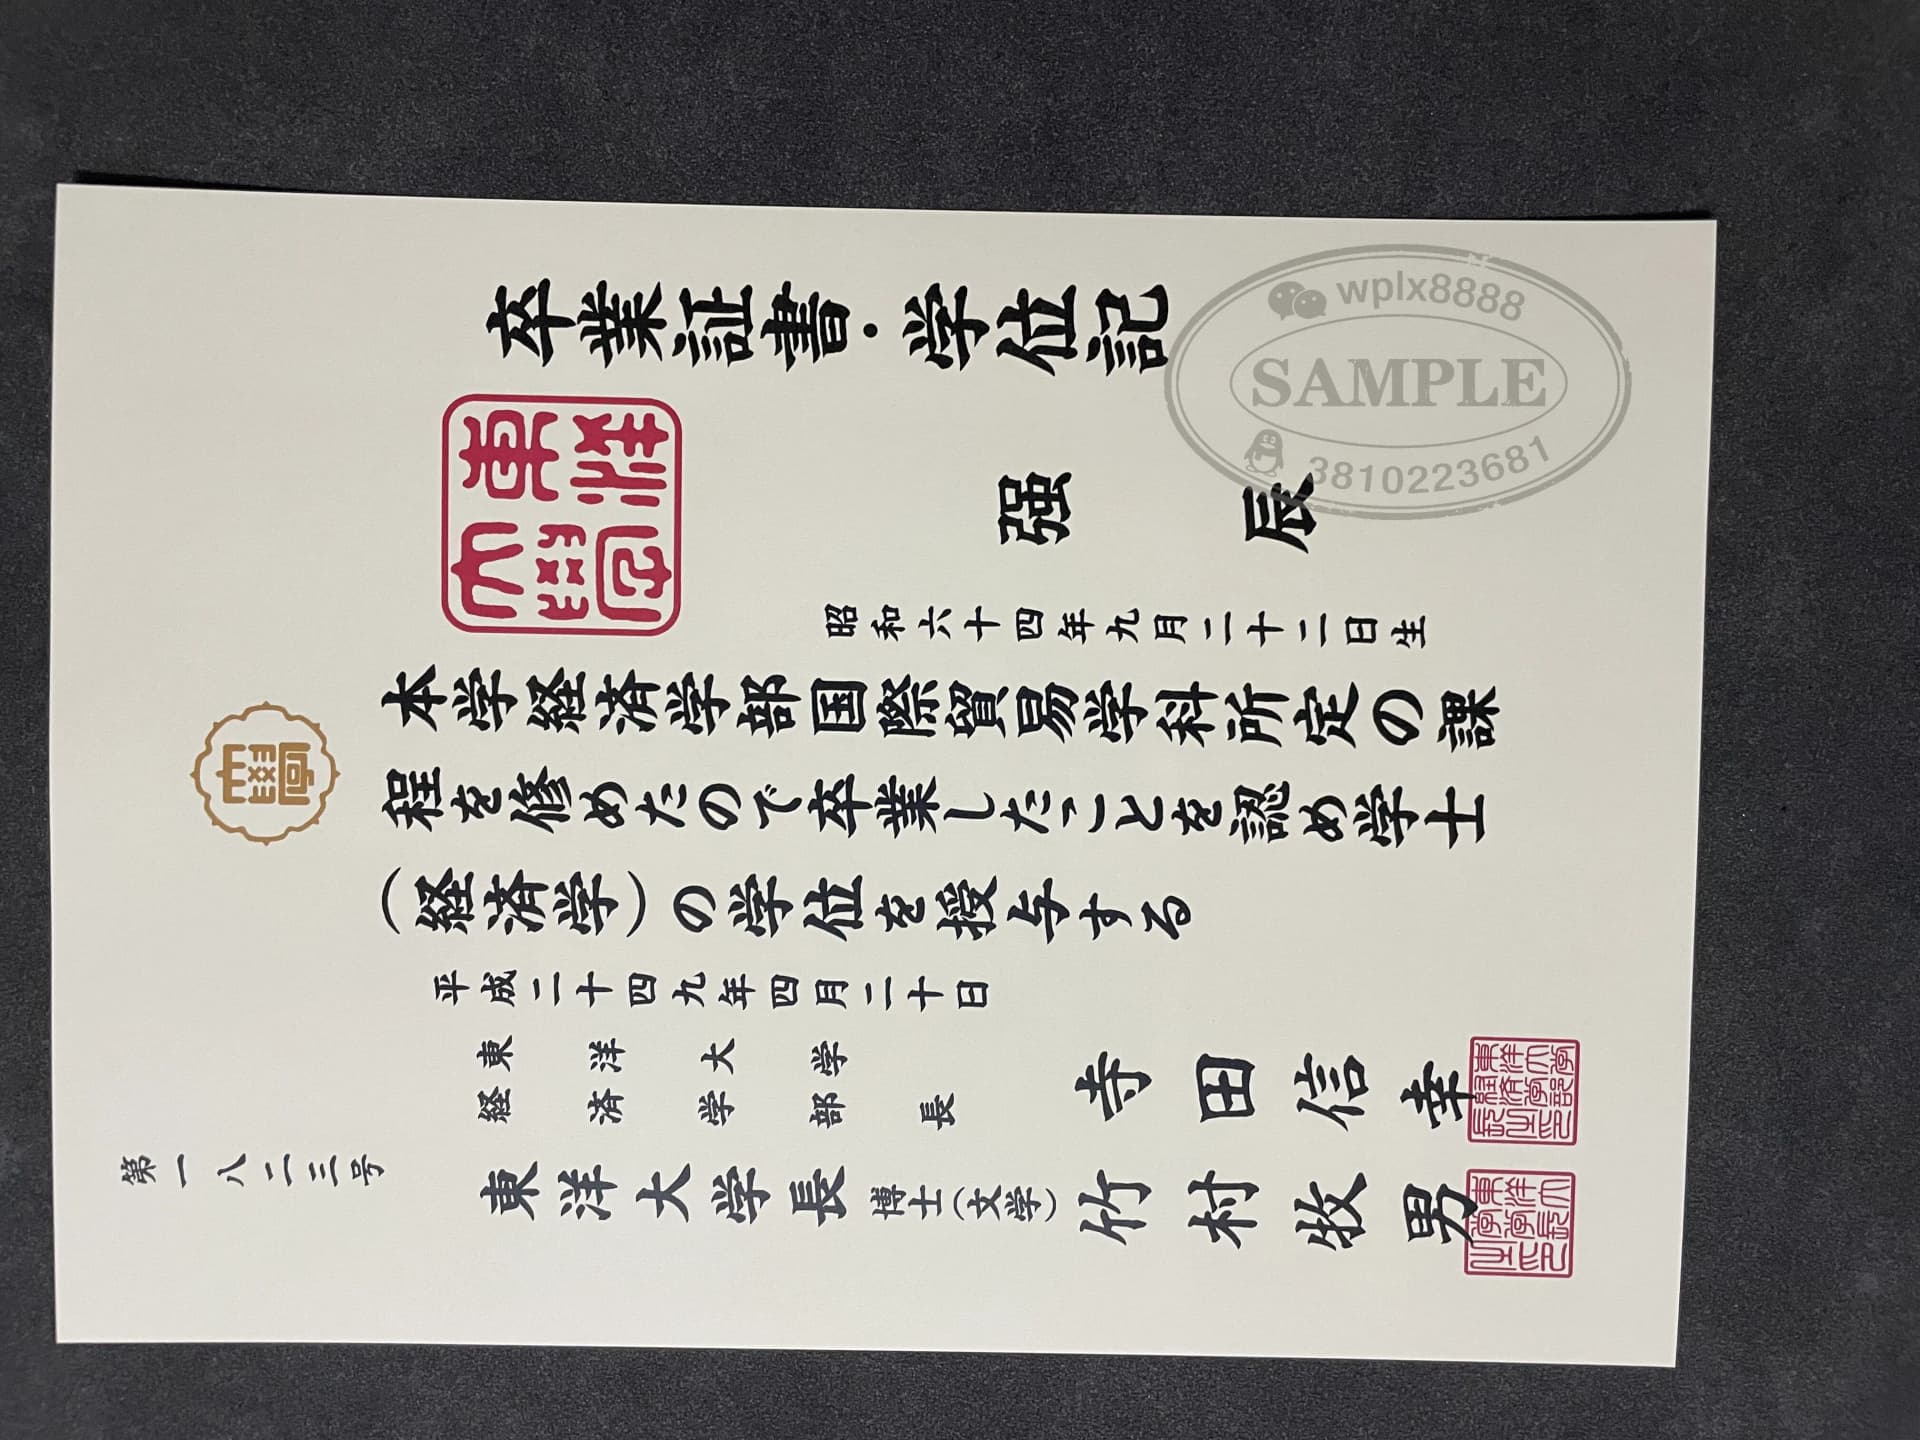 卒業証書・学位記
東洋
大學
强辰
昭和六十四年九月二十二日生
本学経済学部国際貿易学科所定の課
程を修めたので卒業したことを認め学士
(経済学)の学位を授与する
平成二十四九年四月二十日
東洋大学
経済学部長 寺田信幸
東洋大学長 博士(文学) 竹村牧男
第一八二三号
大學
wplx8888
SAMPLE
3810223681